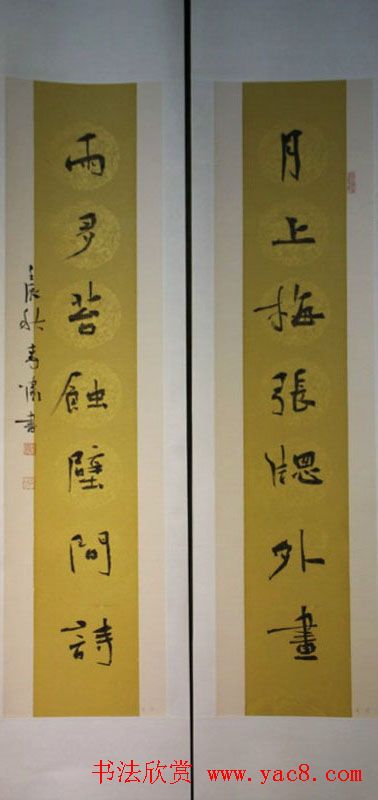 月上梅張牕外畫
雨多苔蝕壁間詩
壬辰秋書
书法欣赏 www.yac8.com